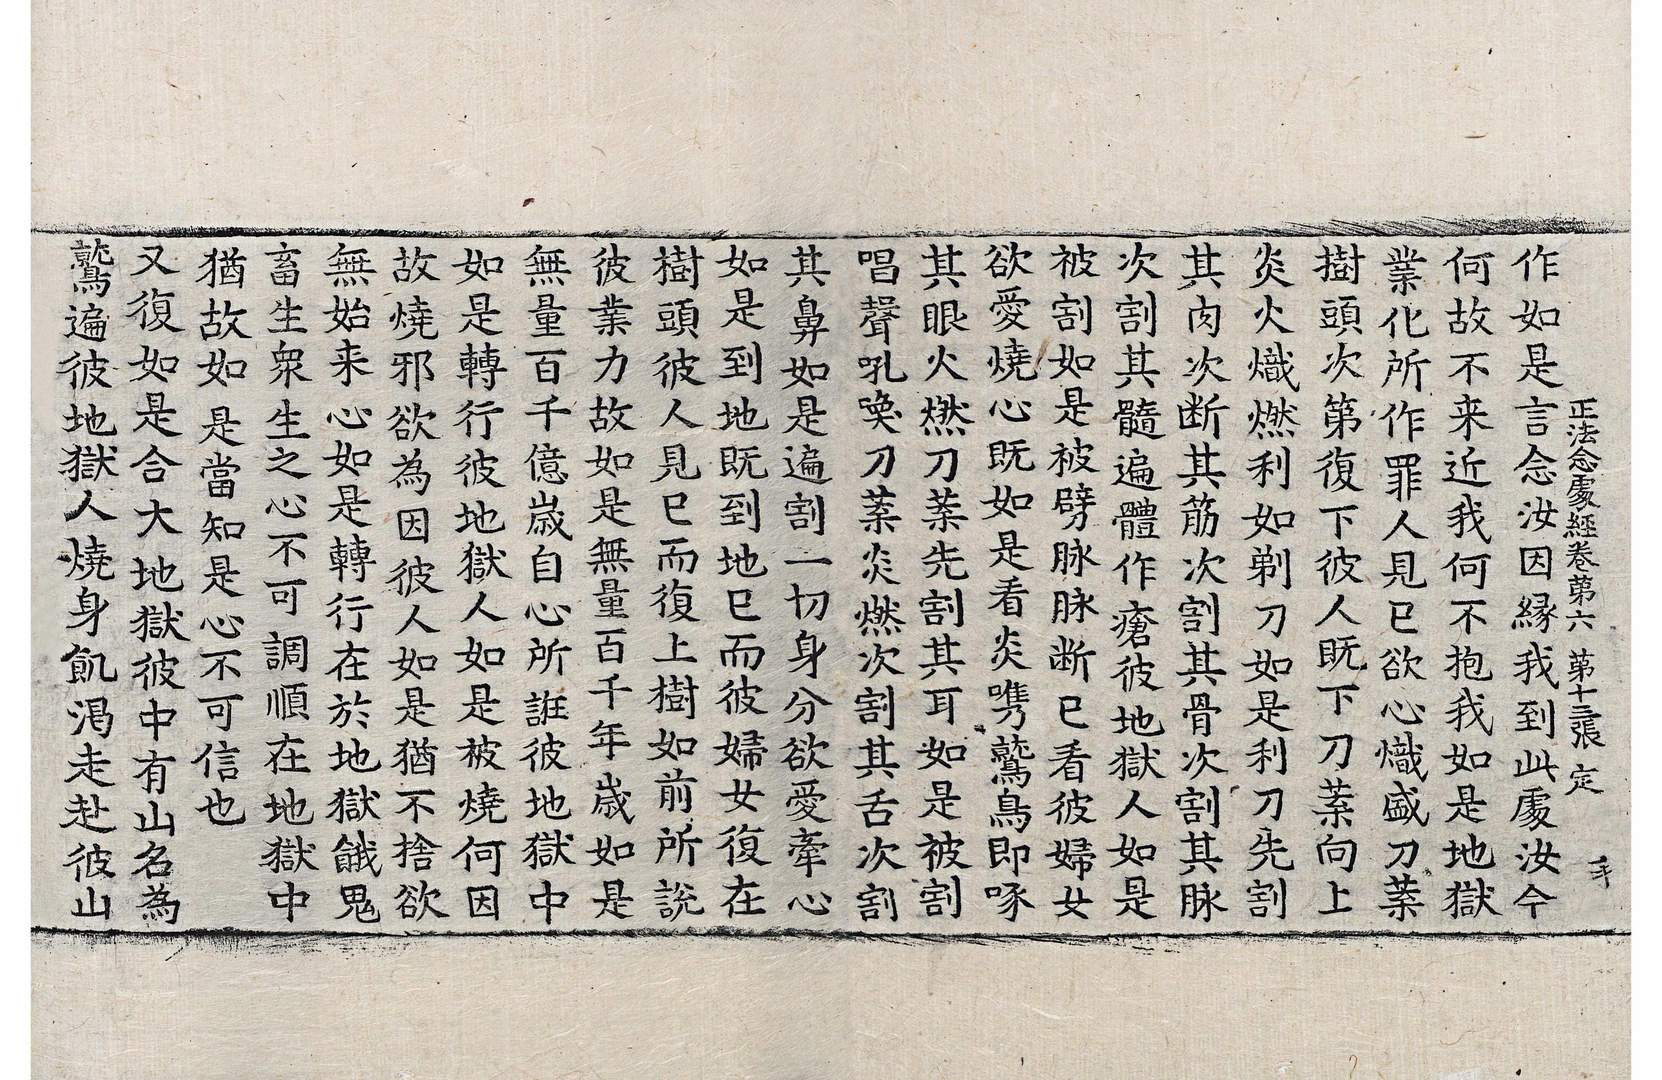 正法念處經卷第六 第十三張 定
作如是言念汝因縁我到此處汝今
何故不来近我何不抱我如是地獄
業化所作罪人見已欲心熾盛刀葉
樹頭次第復下彼人既下刀葉向上
炎火熾燃利如剃刀如是利刀先割
其肉次断其筋次割其骨次割其脉
次割其髓遍體作瘡彼地獄人如是
被割如是被劈脉脉断已看彼婦女
欲愛燒心既如是看炎㗾鷲鳥即啄
其眼火燃刀葉先割其耳如是被割
唱聲吼喚刀葉炎燃次割其舌次割
其鼻如是遍割一切身分欲愛牽心
如是到地既到地已而彼婦女復在
樹頭彼人見已而復上樹如前所說
彼業力故如是無量百千年歲如是
無量百千億歲自心所誑彼地獄中
如是轉行彼地獄人如是被燒何因
故燒邪欲為因彼人如是猶不捨欲
無始来心如是轉行在於地獄餓鬼
畜生衆生之心不可調順在地獄中
猶故如是當知是心不可信也
又復如是合大地獄彼中有山名為
鷲遍彼地獄人燒身飢渴走赴彼山